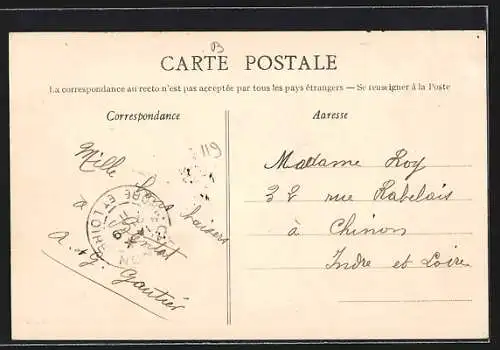 B
CARTE POSTALE
La correspondance au recto n'est pas acceptée par tous les pays étrangers — Se renseigner à la Poste
Correspondance
Adresse
119
Mille bons baisers
à bientôt
A. & G. Gautier
Madame Roy
32 rue Rabelais
à Chinon
Indre et Loire
CHINON
INDRE ET LOIRE